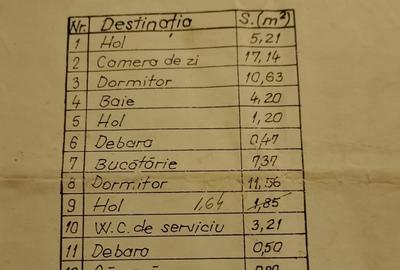 Nr. Destinația S.(m²)
1 Hol 5,21
2 Camera de zi 17,14
3 Dormitor 10,63
4 Baie 4,20
5 Hol 1,20
6 Debara 0,47
7 Bucătărie 7,37
8 Dormitor 11,56
9 Hol 1,64 1,85
10 W.C. de serviciu 3,21
11 Debara 0,50